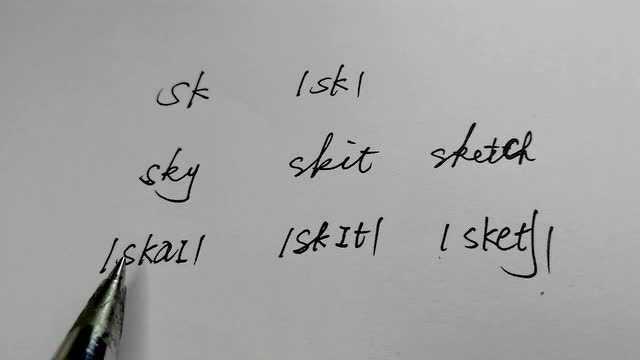 sk /sk/
sky skit sketch
/skaɪ/ /skɪt/ /sketʃ/